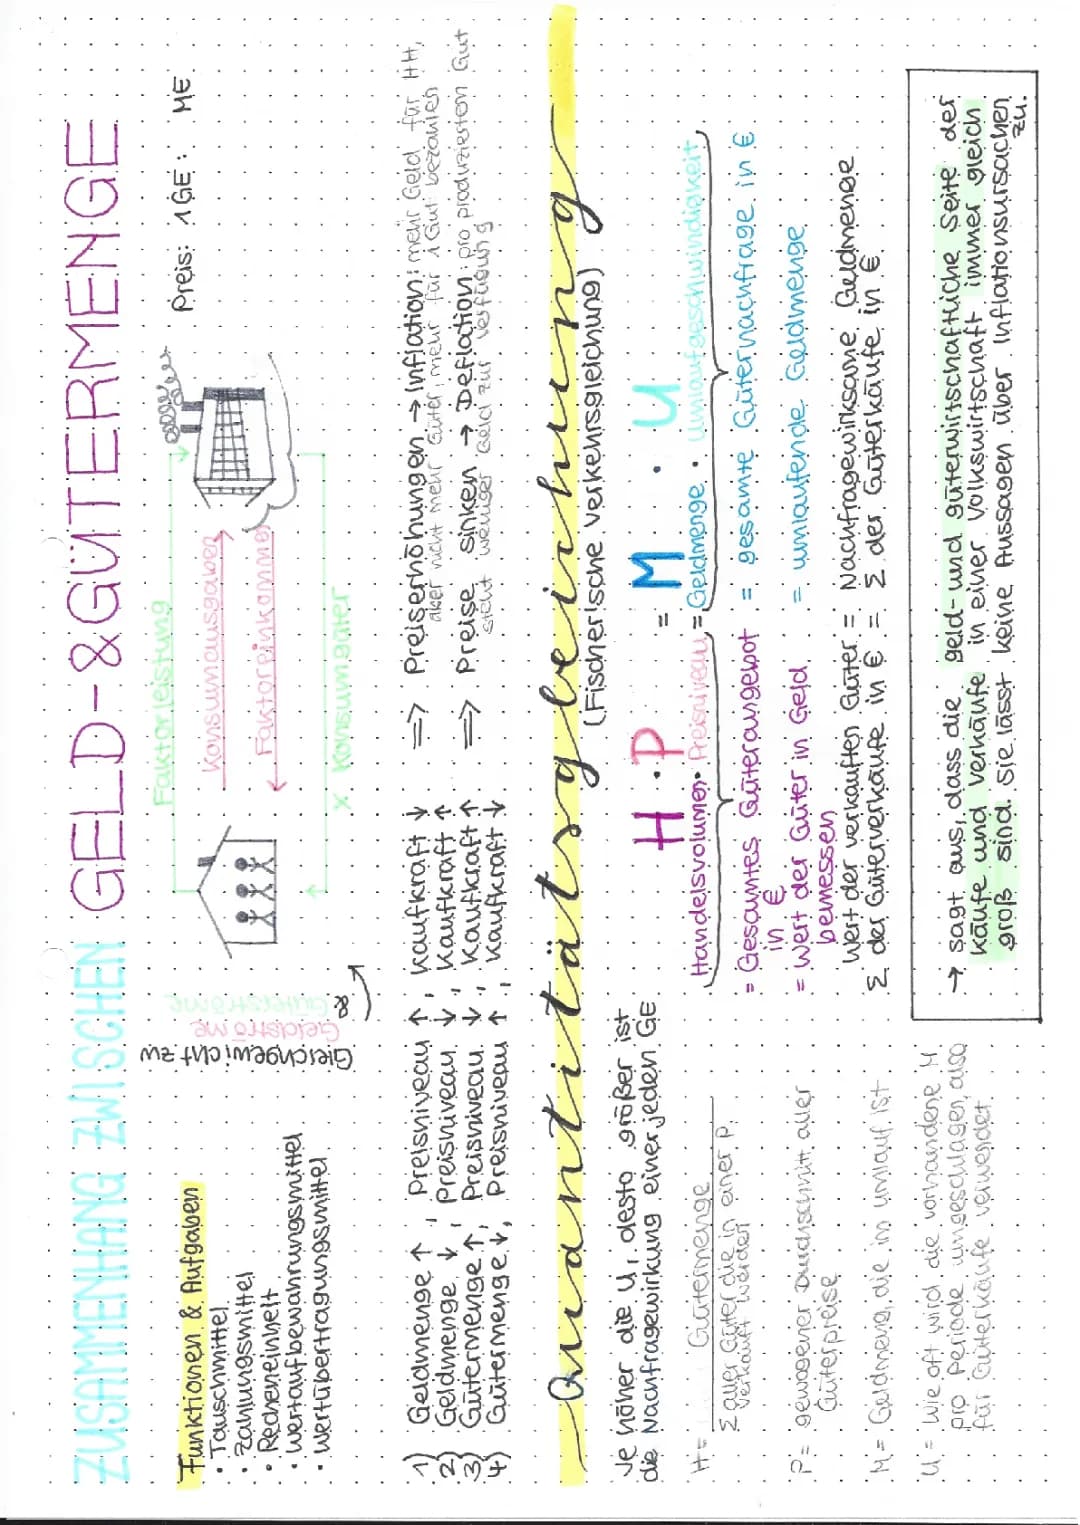 ZUSAMMENHANG ZWISCHEN GELD-&GÜTERMENGE
Funktionen & Aufgaben
• Tauschmittel
• Zahlungsmittel
• Recheneinheit
• Wertaufbewahrungsmittel
• Wertübertragungsmittel
Gleichgewicht zw
Geldströme
& Güterströme
Faktorleistung
Konsumausgaben
Faktoreinkommen
x Konsumgüter
Preis: 1GE: ME
1) Geldmenge ↑, Preisniveau ↑, Kaufkraft ↓ => Preiserhöhungen → Inflation: mehr Geld für HH,
aber nicht mehr Güter, mehr für 1 Gut bezahlen
2) Geldmenge ↓, Preisniveau ↓, Kaufkraft ↑
3) Gütermenge ↑, Preisniveau ↓, Kaufkraft ↑ => Preise sinken → Deflation: pro produziertem Gut
steht weniger Geld zur Verfügung
4) Gütermenge ↓, Preisniveau ↑, Kaufkraft ↓
Quantitätsgleichung
(Fischerische Verkehrsgleichung)
Je höher die U, desto größer ist
die Nachfragewirkung einer jeden GE
H = Gütermenge
Σ aller Güter die in einer P
verkauft werden
P = gewogener Durchschnitt aller
Güterpreise
M = Geldmeng, die in Umlauf ist
U = Wie oft wird die vorhandene M
pro Periode umgeschlagen, also
für Güterkäufe verwendet
H · P = M · U
Handelsvolumen · Preisniveau = Geldmenge · Umlaufgeschwindigkeit
= Gesamtes Güterangebot
in €
= gesamte Güternachfrage in €
= Wert der Güter in Geld
bemessen
= umlaufende Geldmenge
Wert der verkauften Güter = Nachfragewirksame Geldmenge
Σ der Güterverkäufe in € = Σ der Güterkäufe in €
→ sagt aus, dass die geld-und güterwirtschaftliche Seite der
Käufe und Verkäufe in einer Volkswirtschaft immer gleich
groß sind. Sie lässt keine Aussagen über Inflationsursachen
zu.